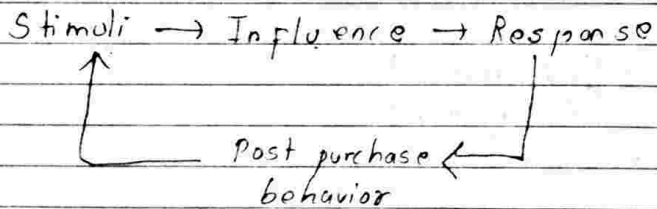 Stimuli → Influence → Response
Post purchase
behavior